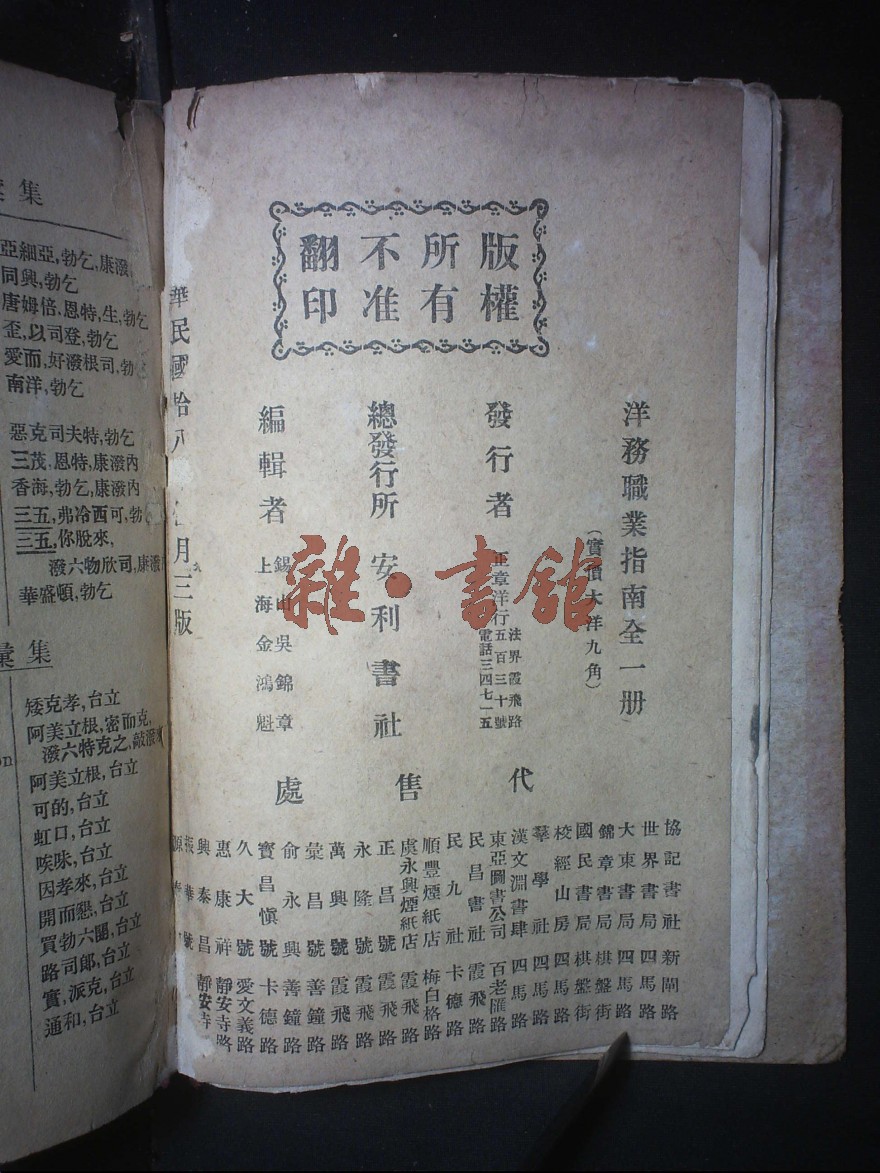 版權
所有
不准
翻印
洋務職業指南全一册
（實價大洋九角）
發行者
正章洋行
法界霞飛路
五百三十號
電話三四七一五
總發行所 安利書社
編輯者
錫山吳錦章
上海金鴻魁
華民國拾八
月三版
代售處
協記書社 新閘路
世界書局 四馬路
大東書局 四馬路
錦章書局 棋盤街
國民書局 棋盤街
校經山房 四馬路
羣學社 四馬路
漢文淵書肆 四馬路
東亞圖書公司 百老匯路
民昌書社 霞飛路
民九社 卡德路
順豐煙紙店 梅白格路
虞永興煙紙店 霞飛路
正昌號 霞飛路
永隆號 霞飛路
萬興號 霞飛路
彙昌號 善鐘路
俞永興 善鐘路
寶昌慎號 卡德路
久大號 愛文義路
惠康祥 靜安寺路
興泰昌 靜安寺
華號
集
亞細亞,勃乞,康潑
同興,勃乞
唐姆倍,恩特,生,勃乞
歪,以司登,勃乞
愛而,好潑根司,勃
南洋,勃乞
惡克司夫特,勃乞
三茂,恩特,康潑內
香海,勃乞,康潑內
三五,弗冷西可,勃
三五,你脫來,
潑六物欣司,康潑
華盛頓,勃乞
彙集
矮克孝,台立
阿美立根,密而克,
潑六特克之,敲潑
阿美立根,台立
可的,台立
虹口,台立
唉味,台立
因孝來,台立
開而懇,台立
買勃六圖,台立
路司郎,台立
實,派克,台立
通和,台立
on
雜·書館